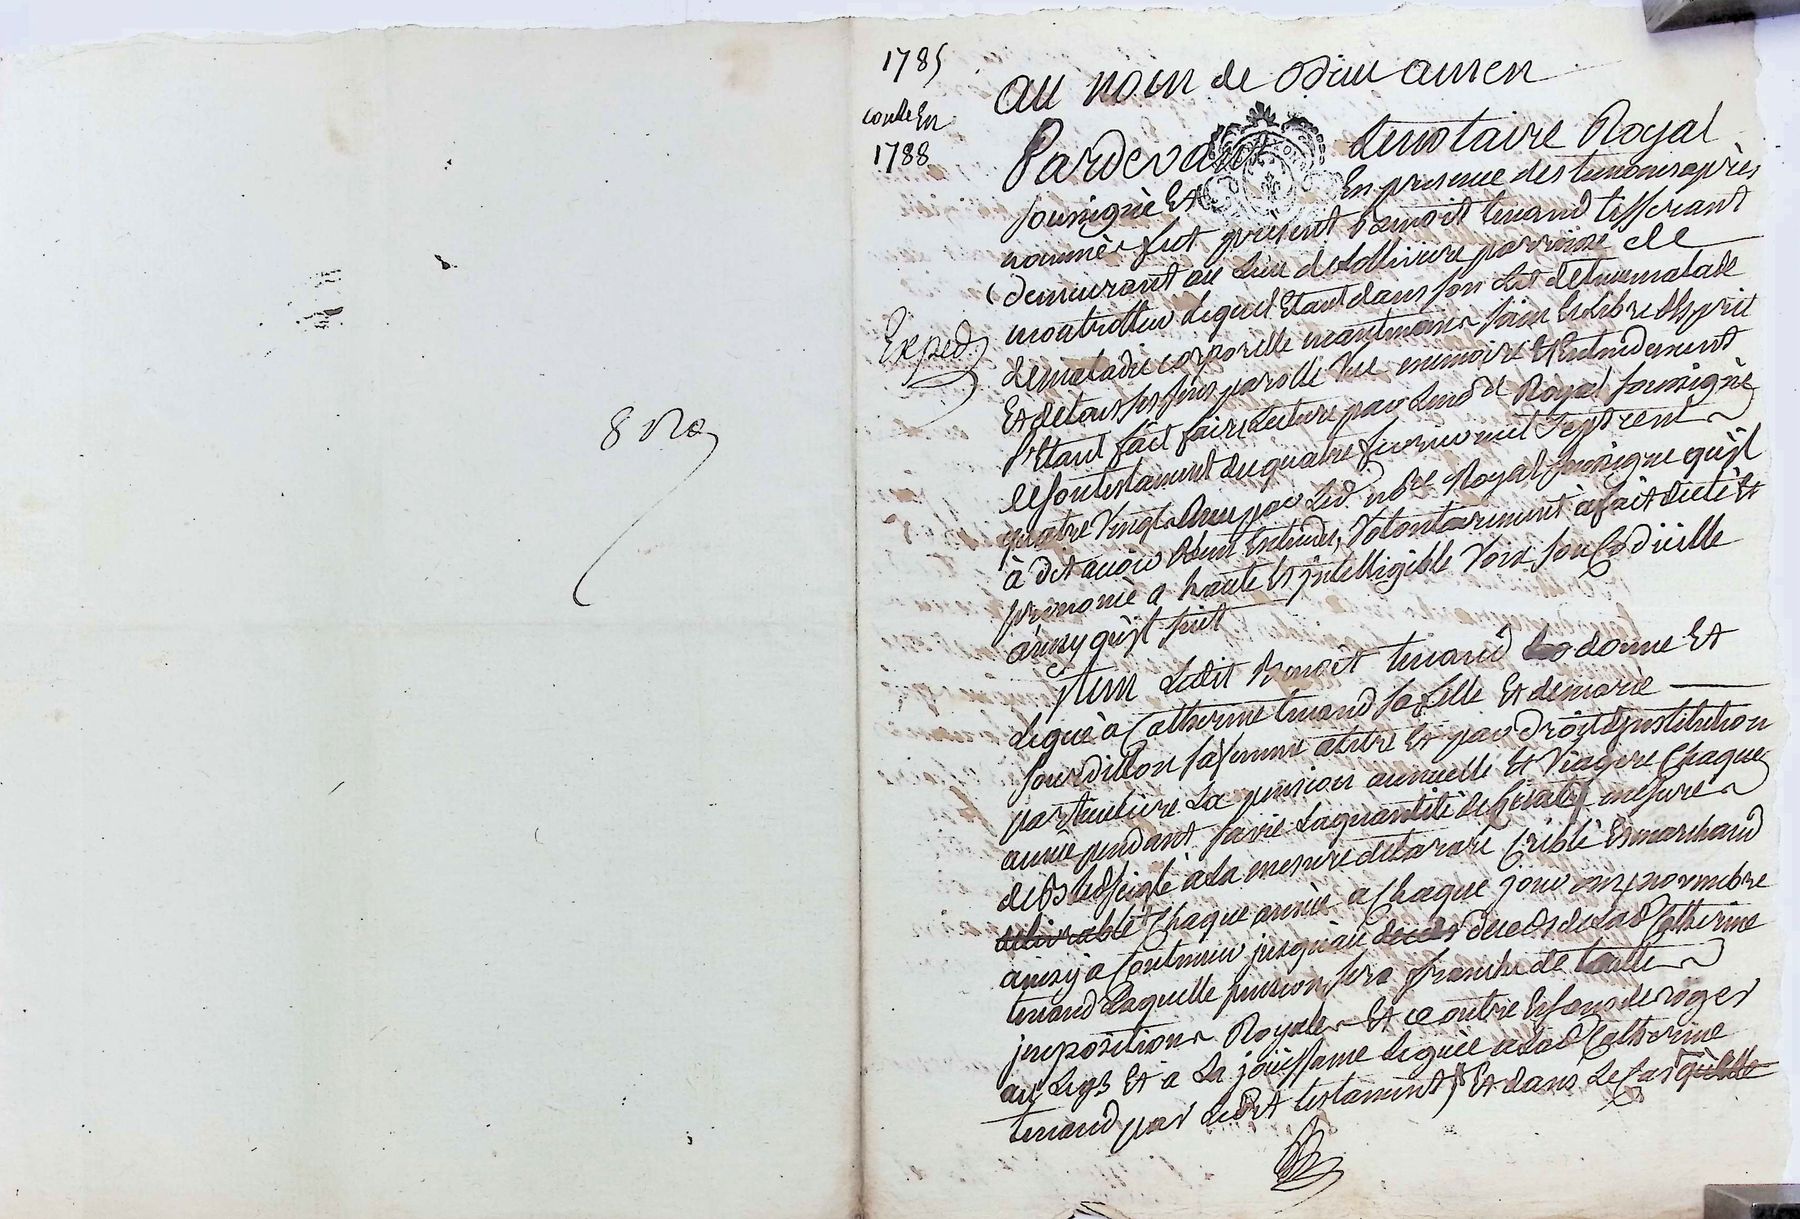 8 bre
1785
contle En
1788
Exped
au nom de Dieu amen
Pardevant Le notaire Royal
soussigné Et En presence des temoins après
nommés fut présent Benoit tenand tisserant
demeurant au Lieu de Lolliviere parroisse de
montrottier Lequel Etant dans son Lit detenu malade
de maladie corporelle neantmoins sain Et Libre d'Esprit
Et de tous ses sens parolle Vue memoire Et Entendement
s'Etant fait faire Lecture par Led n.re Royal soussigné
de son testament du quatre fevrier mil sept cent
quatre Vingt deux par Led. n.re Royal soussigné qu'jl
à dit avoir bien Entendu, Volontairement à fait dicté Et
prononcé a haute Et jntelligible Voix son Codicille
ainsy qu'jl suit
jtem Ledit Benoit tenand donne Et
Legue à Catherine tenand sa fille Et de marie
sourdillon sa femme a titre Et par droit d'jnstitution
particuliere La pension annuelle Et Viagere Chaque
année pendant sa vie La quantité de mesures
de Bled seigle à La mesure de tarare Criblé Et marchand
delivrable Chaque année a Chaque jour onze novembre
ainsy a Continuer jusqu'au deces deces de Lad Catherine
tenand Laquelle pension sera franche de toutte
jmpositions Royales Et ce outre Et sans deroger
au Legs Et a La jouissance Leguée a Lad Catherine
tenand par Ledit testament, Et dans Le Cas qu'elle